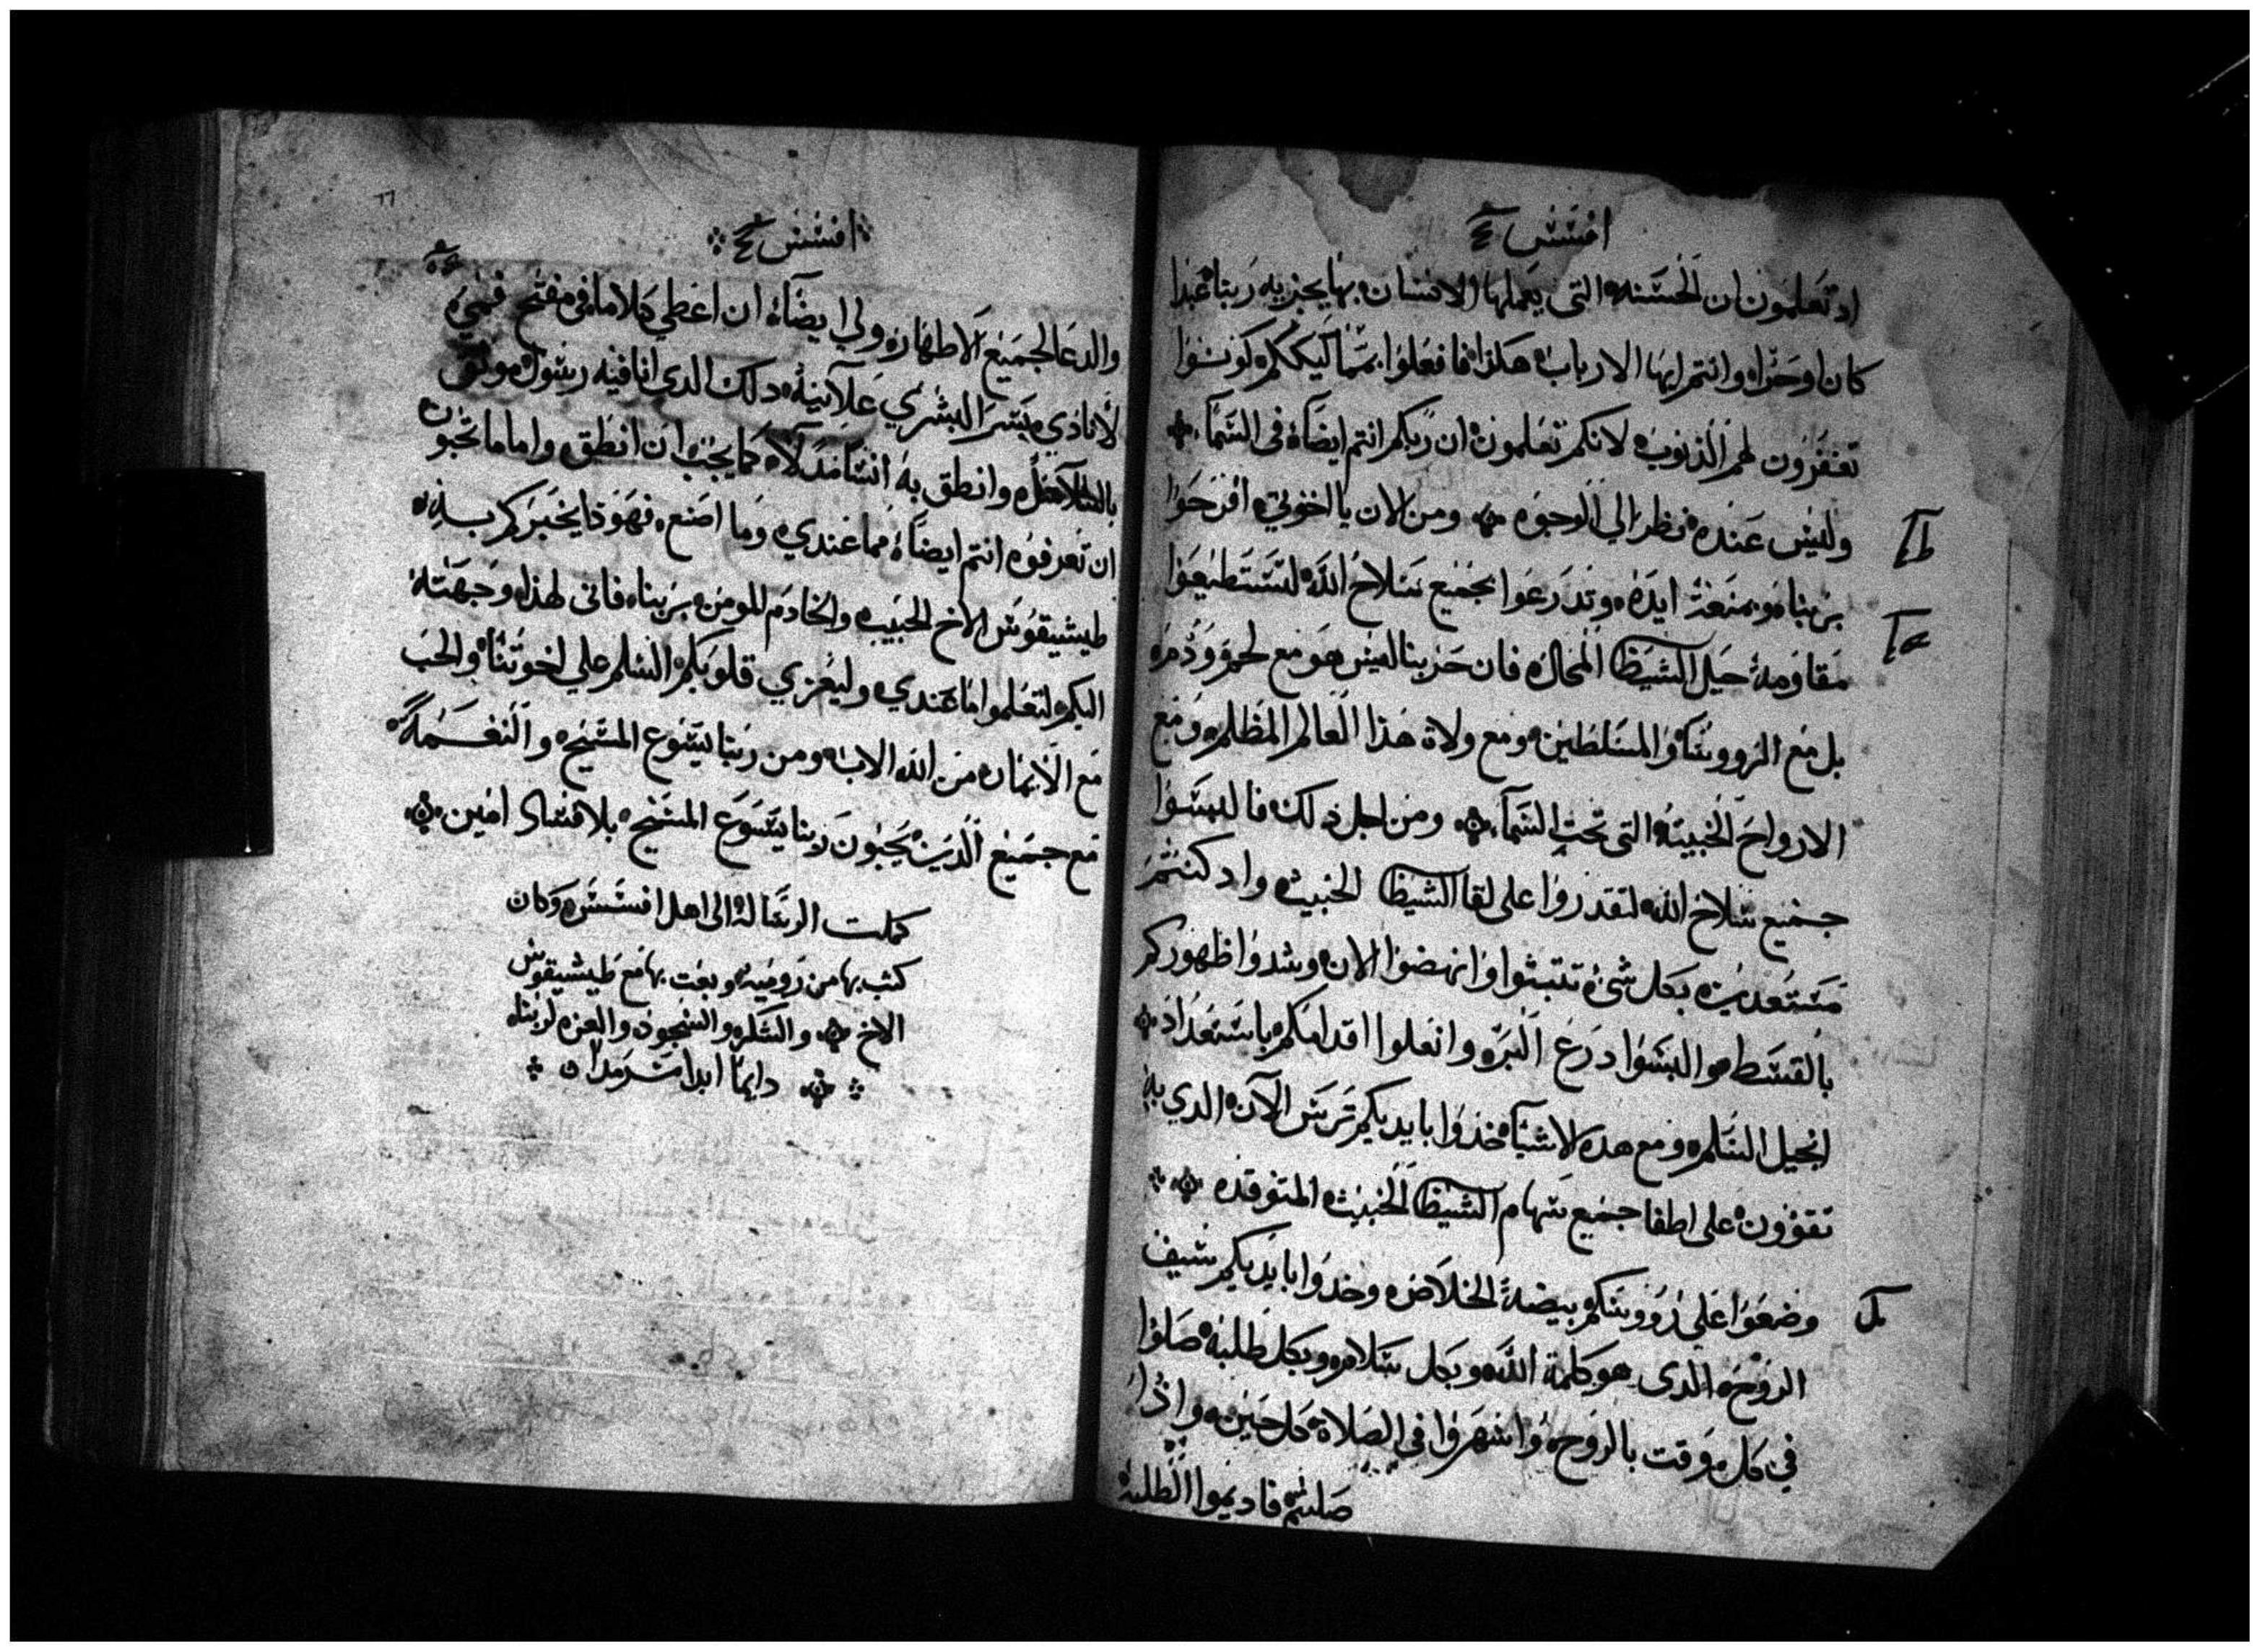 افسس
اد تعلمون ان الحسنه التى يعملها الانسان بها يجزيه ربنا عبدا
كان او حرا وانتم ايها الارباب هكذا فافعلوا بمماليككم كونوا
تغفرون لهم الذنوب لانكم تعلمون ان ربكم انتم ايضا فى السما
وليس عنده نظر الي الوجوه ومن الان يا اخوتي افرحوا
بربنا وبمنعت ايده وتدرعوا بجميع سلاح الله لتستطيعوا
مقاومة حيل الشيطا المحال فان حزبنا ليس هو مع لحم ودم
بل مع الرووسا والمسلطين ومع ولاة هذا العالم المظلم ومع
الارواح الخبيثه التى تحت السما ومن اجل ذلك فالبسوا
جميع سلاح الله لتقدروا على لقا الشيطا الخبيث واد كنتم
مستعدين بكل شى تتبثوا وانهضوا الان وشدوا ظهوركم
بالقسط والبسوا درع البر وانعلوا اقدامكم باستعداد
انجيل السلم ومع هده الاشيا خذوا بايديكم ترس الآن الدي به
تقوون على اطفا جميع سهام الشيطا الخبيث المتوقده
وضعوا علي رووسكم بيضة الخلاص وخدوا بايديكم سيف
الروح الدى هو كلمة الله وبكل سلام وبكل طلبه صلوا
في كل وقت بالروح واسهروا في الصلاة كل حين واذا
صليتم فاديموا الطلبه
افسس
والدعا لجميع الاطهار ولي ايضا ان اعطي كلاما فى مفتح فمي
لانادي بسر البشري علانية دلك الدي انا فيه رسول موثق
بالسلاسل وانطق به انشامدلا كما يجب ان انطق واما ما تحبون
ان تعرفوه انتم ايضا مما عندي وما اصنع فهوذا يخبركم به
طيشيقوس الاخ الحبيب والخادم المومن بربنا فانى لهذا وجهته
اليكم لتعلموا ما عندي وليعزي قلوبكم السلم علي اخوتنا والحب
مع الايمان من الله الاب ومن ربنا يسوع المسيح والنعمة
مع جميع الذين يحبون ربنا يسوع المسيح بلا فساد امين
كملت الرسالة الى اهل افسس وكان
كتب بها من رومية وبعت بها مع طيشيقوس
الاخ والشكر والسجود والعزه لربنا
دايما ابدا سرمدا